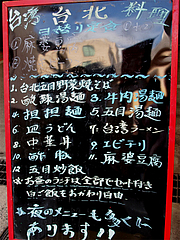 台湾 台北 料理
1. 台北五目野菜焼そば
2. 酸辣湯麺 3. 牛肉湯麺
4. 担担麺 5. 五目湯麺
6. 皿うどん 7. 台湾ラーメン
8. 中華丼 9. エビチリ
10. 酢豚 11. 麻婆豆腐
12. 五目炒飯
お昼のランチは全部セット付き
白ご飯もおかわり自由
夜のメニューも
あります!!